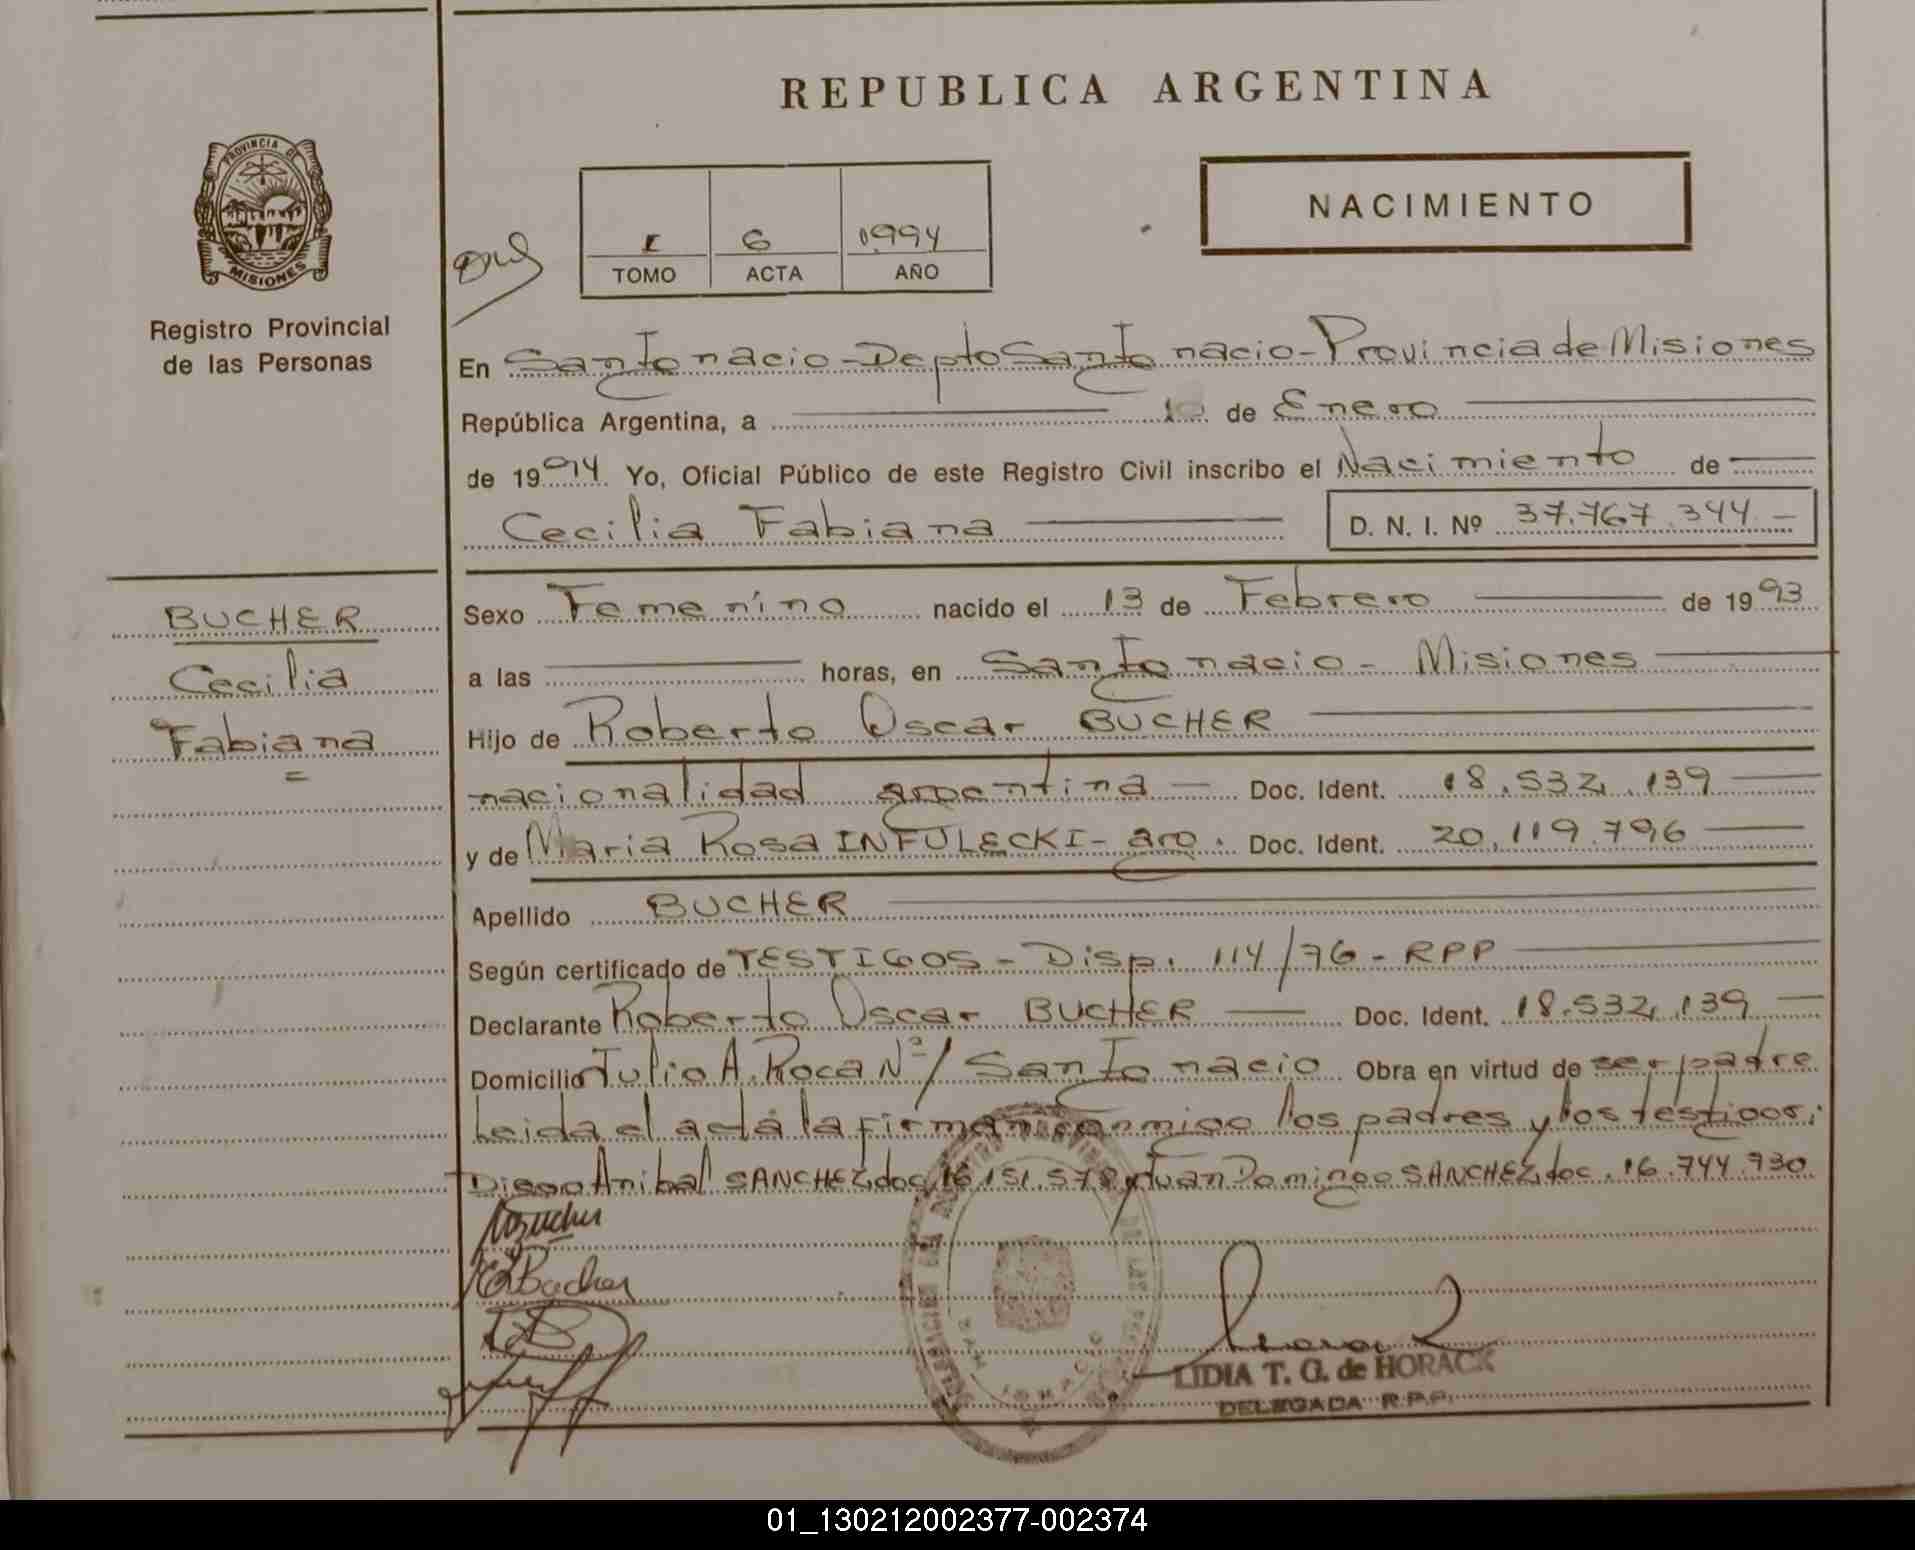 REPUBLICA ARGENTINA
PROVINCIA DE
MISIONES
Registro Provincial
de las Personas
NACIMIENTO
I 6 1994
TOMO ACTA AÑO
En San Ignacio - Depto San Ignacio - Provincia de Misiones
República Argentina, a 10 de Enero
de 1994 Yo, Oficial Público de este Registro Civil inscribo el Nacimiento de
Cecilia Fabiana D. N. I. Nº 37.767.344 -
BUCHER
Cecilia
Fabiana
Sexo Femenino nacido el 13 de Febrero de 1993
a las horas, en San Ignacio - Misiones
Hijo de Roberto Oscar BUCHER
nacionalidad argentina - Doc. Ident. 18.532.139
y de Maria Rosa INFULECKI - arg. Doc. Ident. 20.119.796
Apellido BUCHER
Según certificado de TESTIGOS - Disp. 114/76 - RPP
Declarante Roberto Oscar BUCHER Doc. Ident. 18.532.139
Domicilio Julio A. Roca Nº/ San Ignacio Obra en virtud de ser padre
Leida el acta la firman conmigo los padres y los testigos:
Diego Anibal SANCHEZ doc. 16.151.578 y Juan Domingo SANCHEZ doc. 16.744.930
LIDIA T. G. de HORACK
DELEGADA R.P.P.
01_130212002377-002374